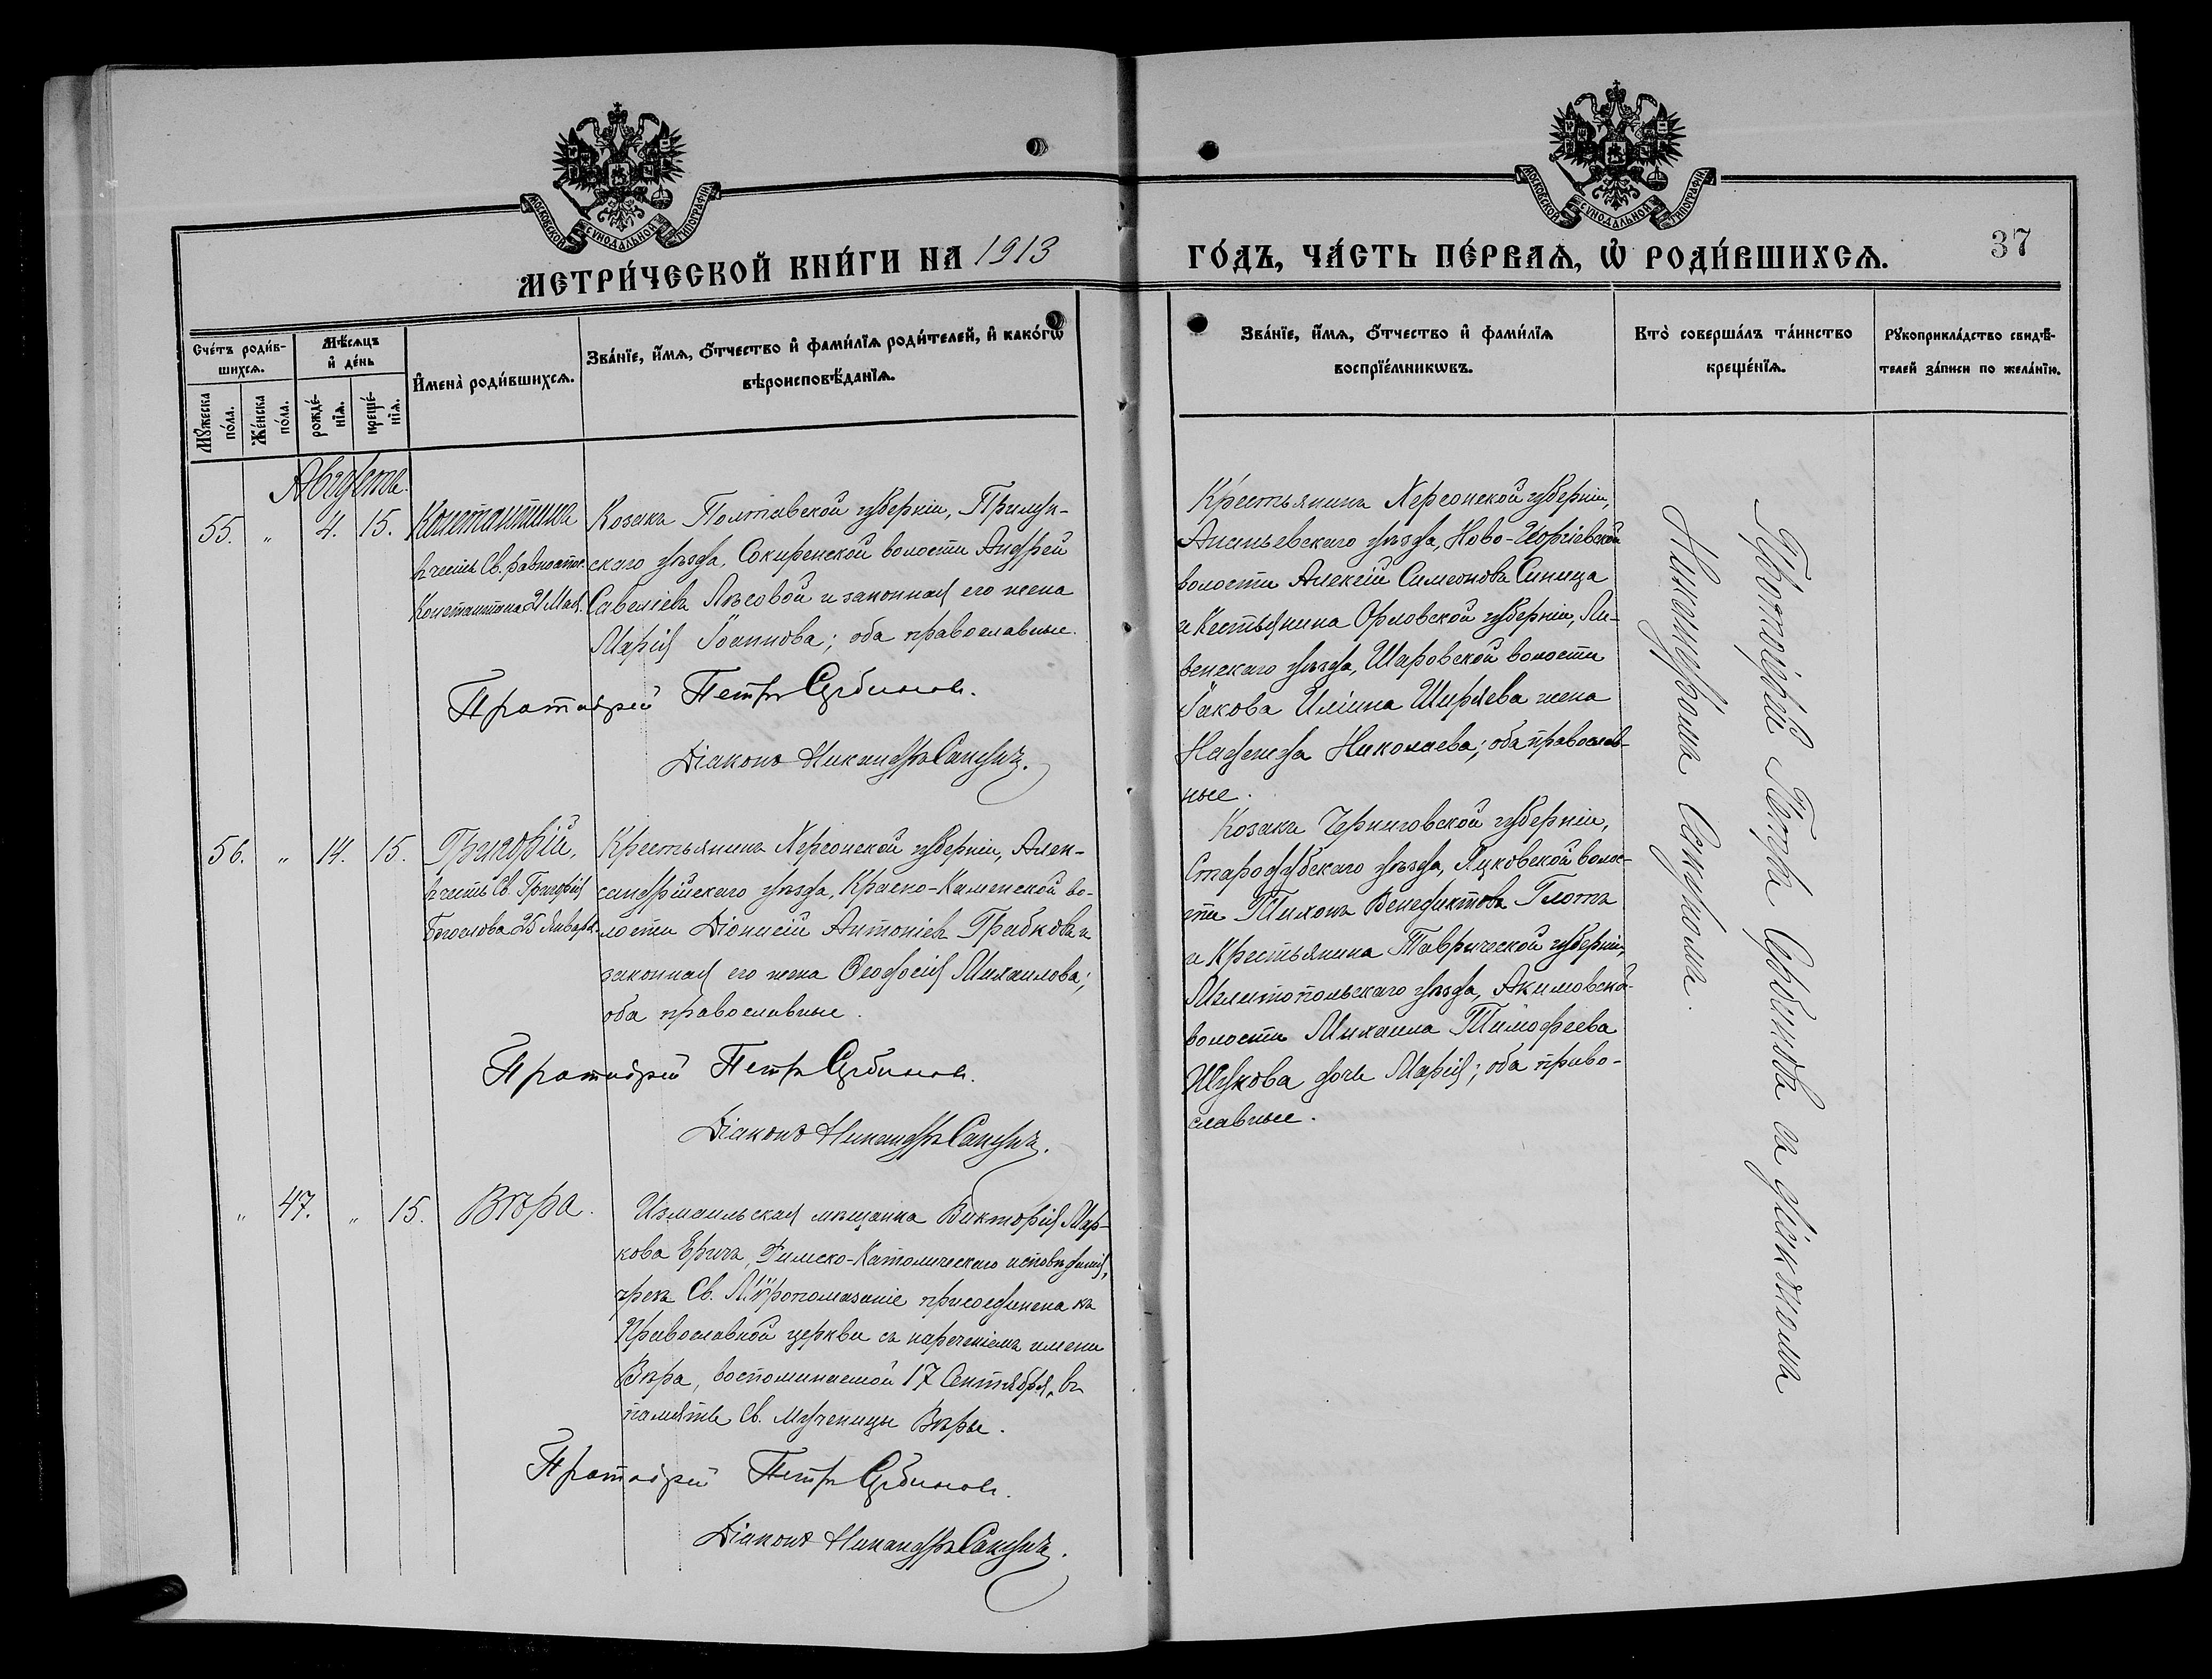 МОСКОВСКОЙ СУНОДАЛЬНОЙ ТИПОГРАФІИ
МОСКОВСКОЙ СУНОДАЛЬНОЙ ТИПОГРАФІИ
МЕТРИ́ЧЕСКОЙ КНИ́ГИ НА 1913
ГО́ДЪ, ЧА́СТЬ ПЕ́РВАѦ, Ѡ҆ РОДИ́ВШИХСѦ.
37
Сче́тъ роди́в-
шихсѧ.
Мꙋ́жеска
по́ла.
Же́нска
по́ла.
Мѣ́сѧцъ
и҆ де́нь
рожде́-
нїѧ.
креще́-
нїѧ.
И҆мена̀ роди́вшихсѧ.
Зва́нїе, и҆́мѧ, ѻ҆́тчество и҆ фами́лїѧ роди́телей, и҆ како́гѡ
вѣроисповѣ́данїѧ.
Зва́нїе, и҆́мѧ, ѻ҆́тчество и҆ фами́лїѧ
воспрїе́мникѡвъ.
Кто̀ соверша́лъ та́инство
креще́нїѧ.
Рꙋкоприкла́дство свидѣ́-
телей за́писи по жела́нїю.
Августъ.
55. " 4. 15. Константинъ
въ честь Св. равноапос.
Константина 21 Мая.
Козакъ Полтавской губерніи, Прилук-
скаго уѣзда, Сокиренской волости Андрей
Савеліевъ Лѣсовой и законная его жена
Марія Іоаннова; оба православные.
Протоіерей Петръ Сербиновъ.
Діаконъ Никандръ Сакунъ.
Крестьянинъ Херсонской губерніи,
Ананьевскаго уѣзда, Ново-Георгіевской
волости Алексій Симеоновъ Синица
и Кестьянина Орловской губерніи, Ли-
венскаго уѣзда, Шаровской волости
Іакова Иліина Ширяева жена
Надежда Николаева; оба православ-
ные.
56. " 14. 15. Григорій,
въ честь Св. Григорія
Богослова 25 Января.
Крестьянинъ Херсонской губерніи, Алек-
сандрійскаго уѣзда, Краско-Каменской во-
лости Діонисій Антоніевъ Грабковъ и
законная его жена Ѳеодосія Михаилова;
оба православные.
Протоіерей Петръ Сербиновъ.
Діаконъ Никандръ Сакунъ.
Козакъ Черниговской губерніи,
Стародубскаго уѣзда, Яцковской волос-
ти Тихонъ Венедиктовъ Глотъ
и Крестьянина Таврической губерніи,
Мелитопольскаго уѣзда, Акимовской
волости Михаила Тимофеева
Шукова дочь Марія; оба право-
славные.
" 47. " 15. Вѣра.
Измаильская мѣщанка Викторія Мар-
кова Еричъ, Римско-Католическаго исповѣданія,
чрезъ Св. Мѵропомазаніе присоединена къ
Православной церкви съ нареченіемъ имени
Вѣра, воспоминаемой 17 Сентября, въ
память Св. Мученицы Вѣры.
Протоіерей Петръ Сербиновъ.
Діаконъ Никандръ Сакунъ.
Протоіерей Петръ Сербиновъ съ діакономъ
Никандромъ Сакуномъ.